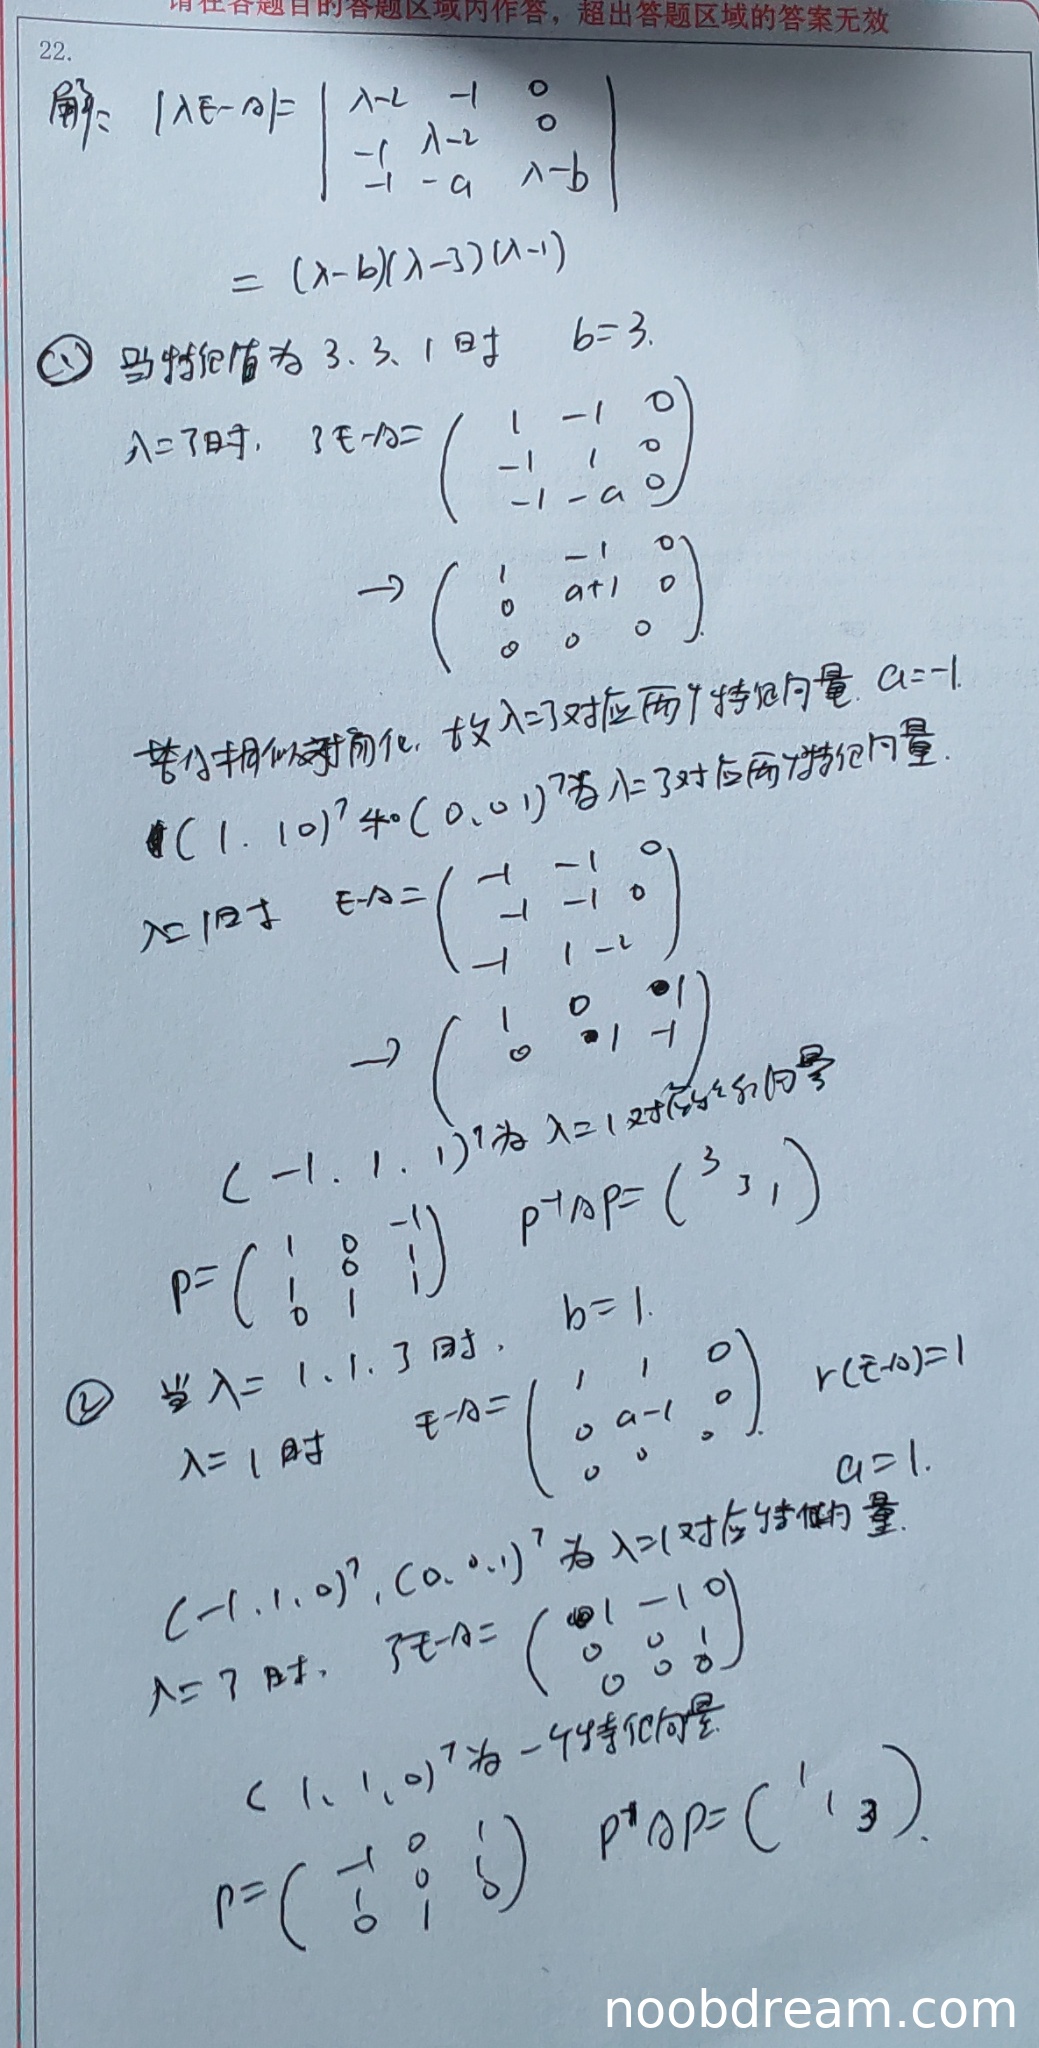 请在各题目的答题区域内作答，超出答题区域的答案无效
22.
解: |λE-A|= | λ-2 -1 0
-1 λ-2 0
-1 -a λ-b |
= (λ-b)(λ-3)(λ-1)
(1) 当特征值为 3、3、1 时 b=3.
λ=3时. 3E-A= ( 1 -1 0
-1 1 0
-1 -a 0 )
→ ( 1 -1 0
0 a+1 0
0 0 0 ).
若A相似对角化, 故λ=3对应两个特征向量. a=-1.
(1. 1 0)ᵀ和(0. 0 1)ᵀ为λ=3对应两个特征向量.
λ=1时 E-A= ( -1 -1 0
-1 -1 0
-1 1 -2 )
→ ( 1 0 1
0 1 -1 )
(-1. 1. 1)ᵀ为λ=1对应的特征向量
P= ( 1 0 -1
1 0 1
0 1 1 ) P⁻¹AP= ( 3 3 1 )
(2) 当λ= 1.1.3时. b=1.
λ=1时 E-A= ( 1 1 0
0 a-1 0
0 0 0 ). r(E-A)=1
a=1.
(-1.1.0)ᵀ, (0.0.1)ᵀ为λ=1对应特征向量.
λ=3时. 3E-A= ( 1 -1 0
0 0 1
0 0 0 )
(1、1、0)ᵀ为一个特征向量.
P= ( -1 0 1
1 0 1
0 1 0 ) P⁻¹AP= ( 1 1 3 ).
noobdream.com